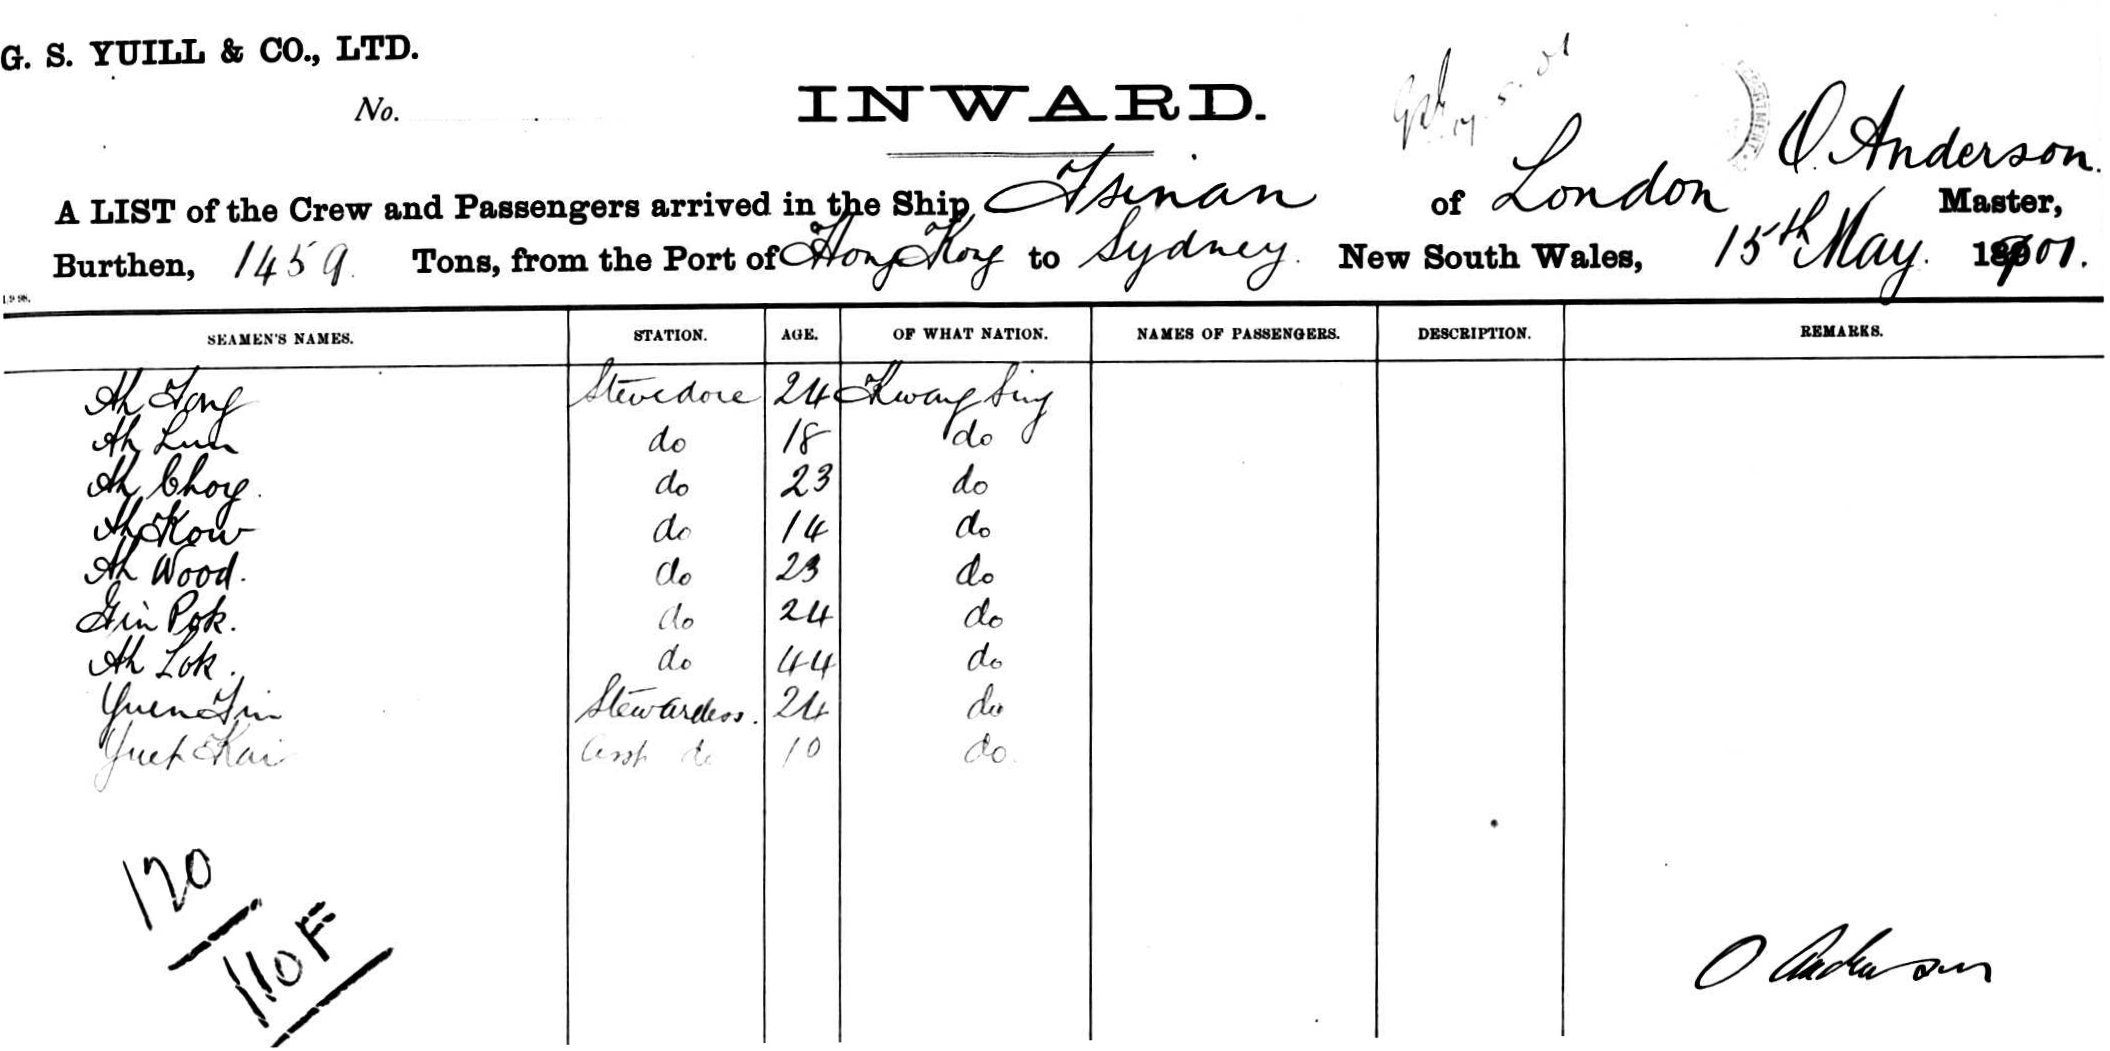 G. S. YUILL & CO., LTD.
No.
INWARD.
17. 5. 01
O. Anderson.
A LIST of the Crew and Passengers arrived in the Ship Tsinan of London Master,
Burthen, 1459. Tons, from the Port of Hong Kong to Sydney. New South Wales, 15th May. 1901.
SEAMEN'S NAMES. STATION. AGE. OF WHAT NATION. NAMES OF PASSENGERS. DESCRIPTION. REMARKS.
Ah Fong Stevedore 24 Kwang Sing
Ah Lum do 18 do
Ah Choy. do 23 do
Ah Kow do 14 do
Ah Wood. do 23 do
Gin Pok. do 24 do
Ah Lok. do 44 do
Yuen Fin Stewardess. 24 do
Yuet Kai Asst do 10 do.
120
110F
O Anderson